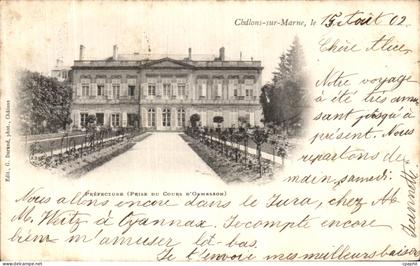 Châlons-sur-Marne, le 15 Août 02
Chère Alice
Notre voyage
a été très amu
sant jusqu'à
présent. Nous
repartons de-
main, samedi.
Édit., G. Durand, phot., Châlons
PRÉFECTURE (PRISE DU COURS D'ORMESSON)
Nous allons encore dans le Jura, chez M.
M. Wetz à Oyonnax. Je compte encore
bien m'amuser là-bas.
Je t'envoie mes meilleurs baisers